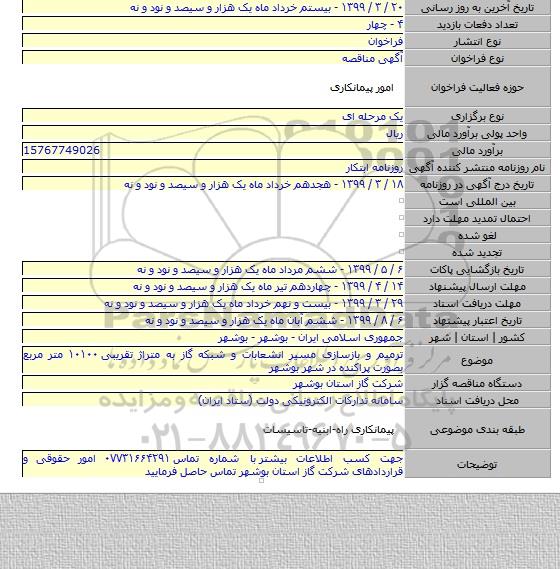 تاریخ آخرین به روز رسانی ۲۰ / ۳ / ۱۳۹۹ - بیستم خرداد ماه یک هزار و سیصد و نود و نه
تعداد دفعات بازدید ۴ - چهار
نوع انتشار فراخوان
نوع فراخوان آگهی مناقصه
حوزه فعالیت فراخوان امور پیمانکاری
نوع برگزاری یک مرحله ای
واحد پولی برآورد مالی ریال
برآورد مالی 15767749026
نام روزنامه منتشر کننده آگهی روزنامه ابتکار
تاریخ درج آگهی در روزنامه ۱۸ / ۳ / ۱۳۹۹ - هجدهم خرداد ماه یک هزار و سیصد و نود و نه
بین المللی است
احتمال تمدید مهلت دارد
لغو شده
تجدید شده
تاریخ بازگشایی پاکات ۶ / ۵ / ۱۳۹۹ - ششم مرداد ماه یک هزار و سیصد و نود و نه
مهلت ارسال پیشنهاد ۱۴ / ۴ / ۱۳۹۹ - چهاردهم تیر ماه یک هزار و سیصد و نود و نه
مهلت دریافت اسناد ۲۹ / ۳ / ۱۳۹۹ - بیست و نهم خرداد ماه یک هزار و سیصد و نود و نه
تاریخ اعتبار پیشنهاد ۶ / ۸ / ۱۳۹۹ - ششم آبان ماه یک هزار و سیصد و نود و نه
کشور | استان | شهر جمهوری اسلامی ایران - بوشهر - بوشهر
موضوع ترمیم و بازسازی مسیر انشعابات و شبکه گاز به متراژ تقریبی ۱۰۱۰۰ متر مربع
بصورت پراکنده در شهر بوشهر
دستگاه مناقصه گزار شرکت گاز استان بوشهر
محل دریافت اسناد سامانه تدارکات الکترونیکی دولت (ستاد ایران)
طبقه بندی موضوعی پیمانکاری راه-ابنیه-تاسیسات
توضیحات جهت کسب اطلاعات بیشتر با شماره تماس ۰۷۷۳۱۶۶۴۲۹۱ امور حقوقی و
قراردادهای شرکت گاز استان بوشهر تماس حاصل فرمایید
۰۲۱-۸۸۳۴۹۶۷۰-۵